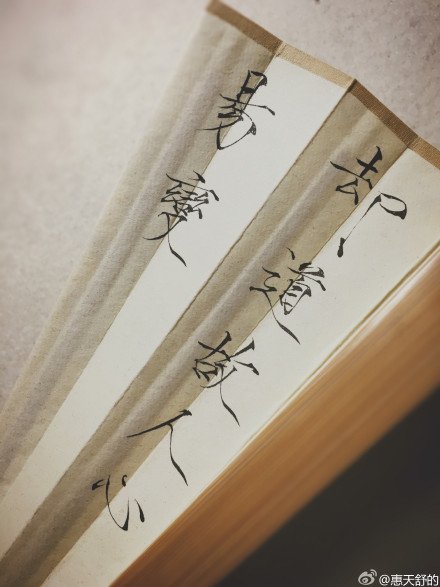 却道故人心
易變
@惠天舒的